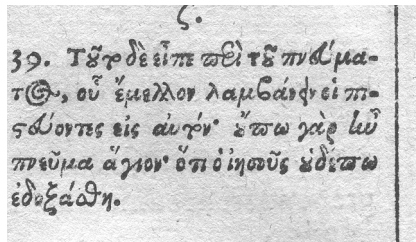 ζ.
39. Τοῦτο δὲ εἶπε περὶ τοῦ πνεύμα-
τος, οὗ ἔμελλον λαμβάνειν οἱ πι-
στεύοντες εἰς αὐτόν· οὔπω γὰρ ἦν
πνεῦμα ἅγιον· ὅτι ὁ ἰησοῦς οὐδέπω
ἐδοξάσθη.